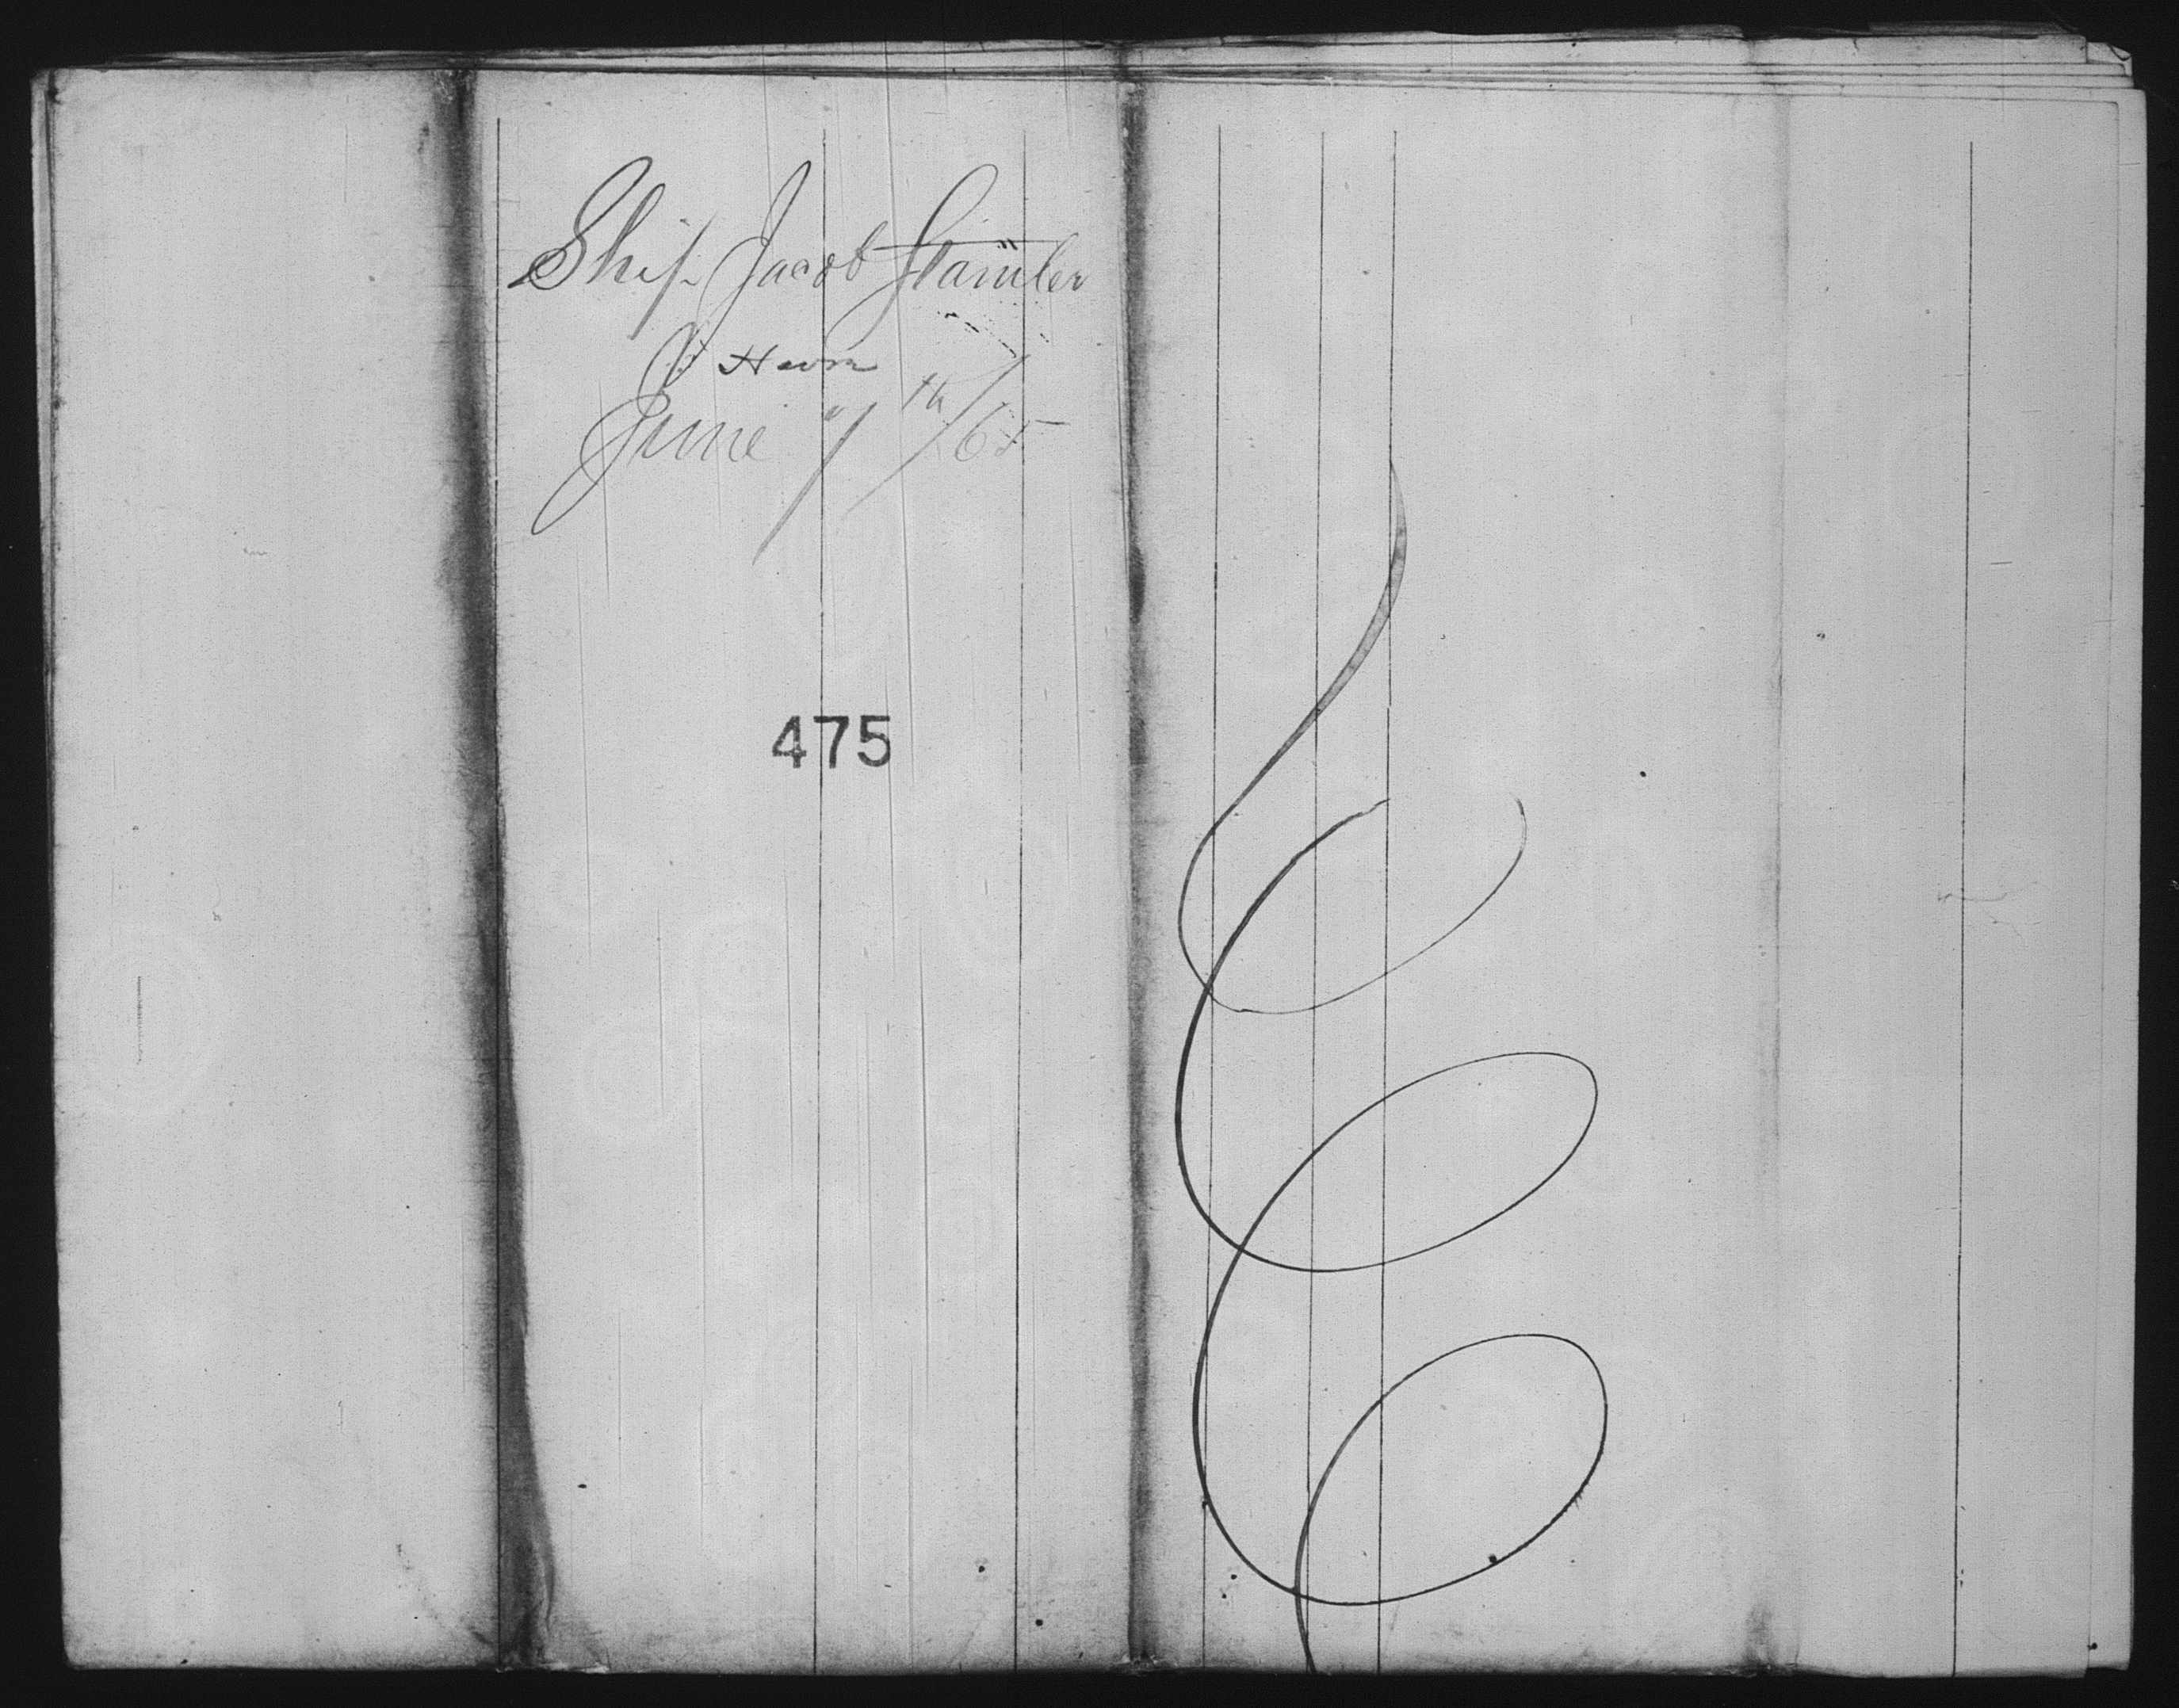 Ship Jacob Stamler
Havre
June 7th/65
475